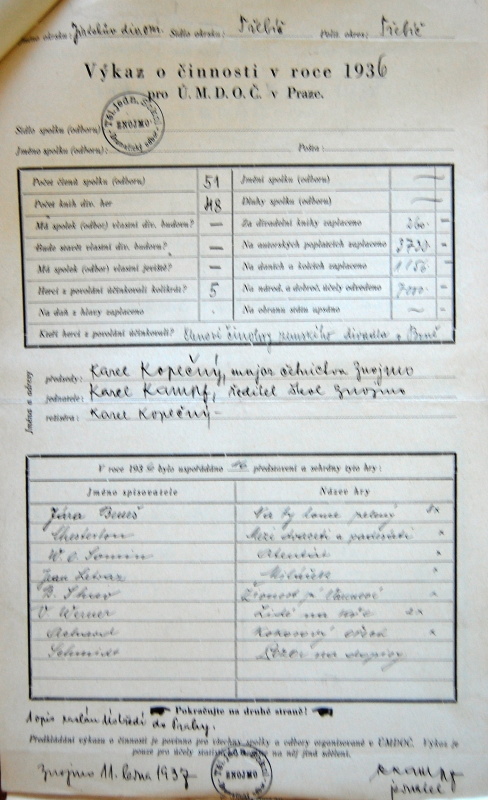 Jméno okrsku: Jiráskův divad. Sídlo okrsku: Třebíč Polit. okres: Třebíč
Výkaz o činnosti v roce 1936
pro Ú. M. D. O. Č. v Praze.
Sídlo spolku (odboru)
ZNOJMO
Jméno spolku (odboru): Pošta:
Počet členů spolku (odboru) 51 Jmění spolku (odboru) —
Počet knih div. her 48 Dluhy spolku (odboru) —
Má spolek (odbor) vlastní div. budovu? — Za divadelní knihy zaplaceno 260.– –
Bude stavět vlastní div. budovu? — Na autorských poplatcích zaplaceno 3730.– –
Má spolek (odbor) vlastní jeviště? — Na daních a kolcích zaplaceno 1156 –
Herci z povolání účinkovali kolikrát? 5 Na národ. a dobroč. účely odvedeno 7000.– –
Na daň z hlavy zaplaceno . Na obranu státu upsáno — –
Kteří herci z povolání účinkovali? Členové činohry zemského divadla v Brně
Jména a adresy
předsedy: Karel Kopečný, major četnictva Znojmo
jednatele: Karel Kampf, ředitel škol Znojmo
režiséra: Karel Kopečný –
V roce 1936 bylo uspořádáno představení a sehrány tyto hry:
Jméno spisovatele Název hry
Jára Beneš Na tý louce zelený
Chesterton Mezi dvaceti a padesáti
W. O. Somin Atentát
Jean Letraz Miláček
B. Shaw Živnost pí Warrenové
V. Werner Lidé na kře 2x
Achard Kokosový ořech
Schmidt Pozor na
Pokračujte na druhé straně!
1 opis zaslán Ústředí do Prahy.
Předkládání výkazu o činnosti je povinno pro všechny spolky a odbory organisované v ÚMDOČ. Výkaz je
pouze pro účely statistické na něj jiná sdělení.
Znojmo 11. ledna 1937 ZNOJMO Kampf
jednatel